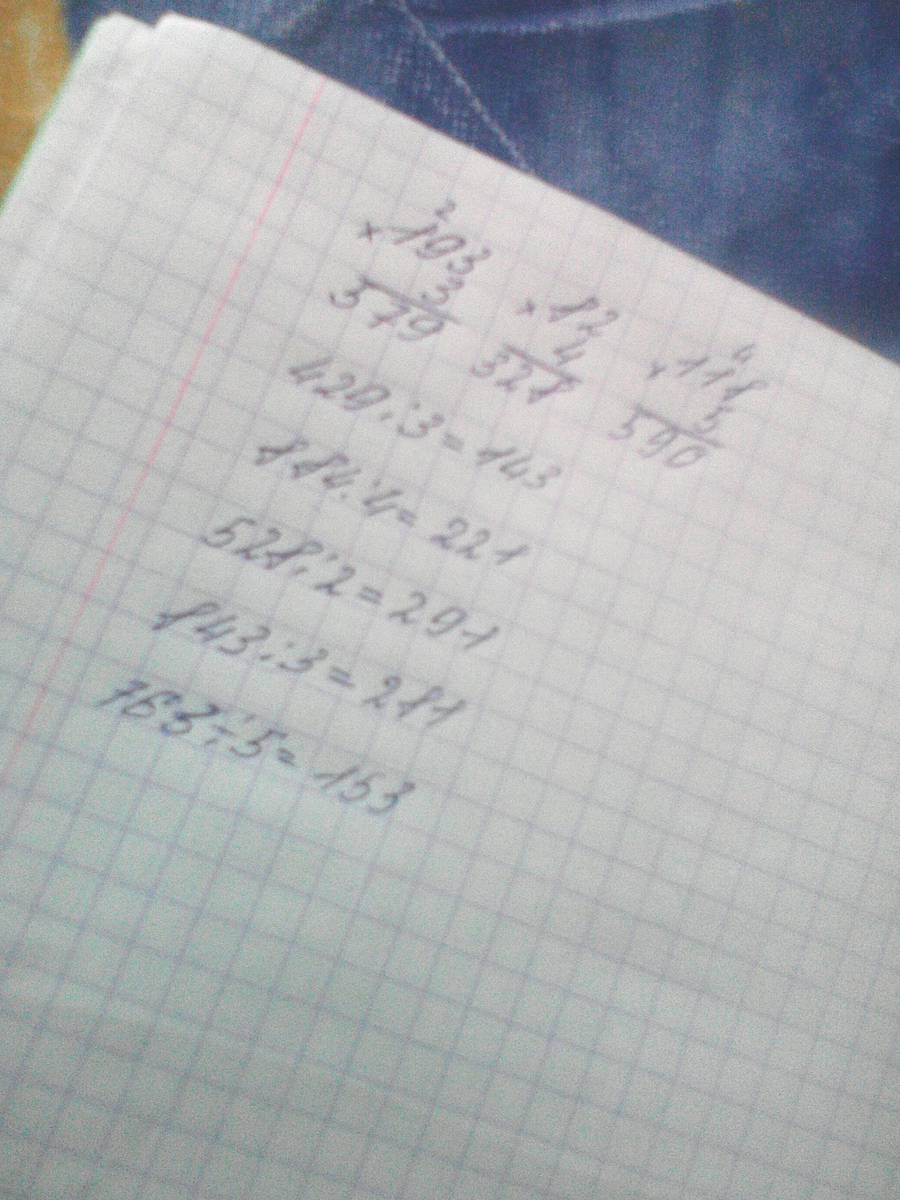 2 4
× 193 × 82 × 118
3 4 5
579 328 590
429 : 3 = 143
884 : 4 = 221
528 : 2 = 291
843 : 3 = 281
763 : 5 = 153